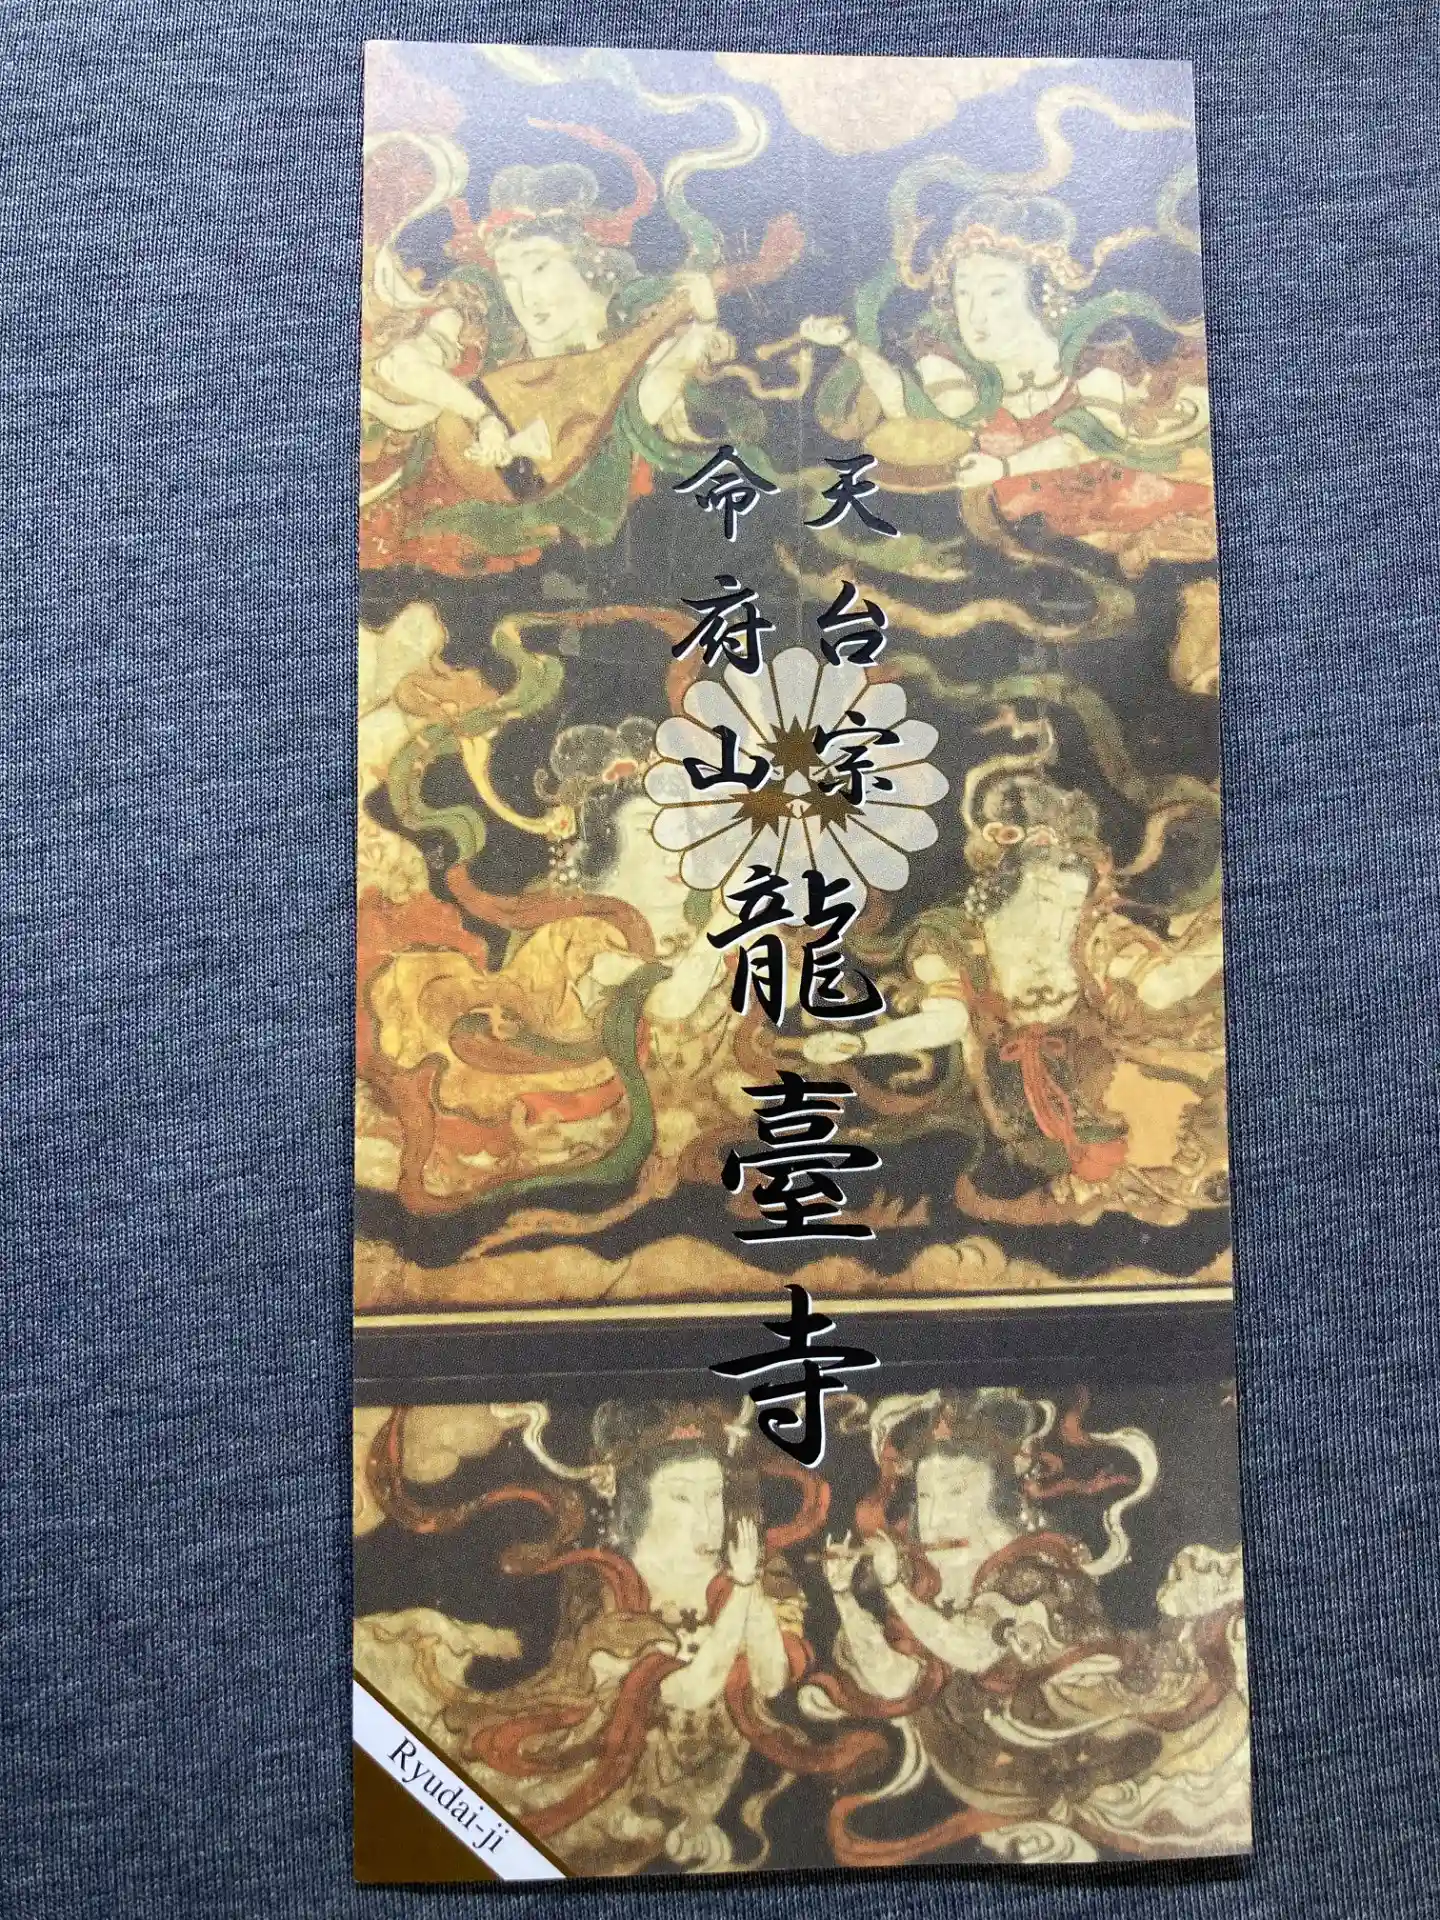 天台宗
命府山
龍臺寺
Ryudai-ji